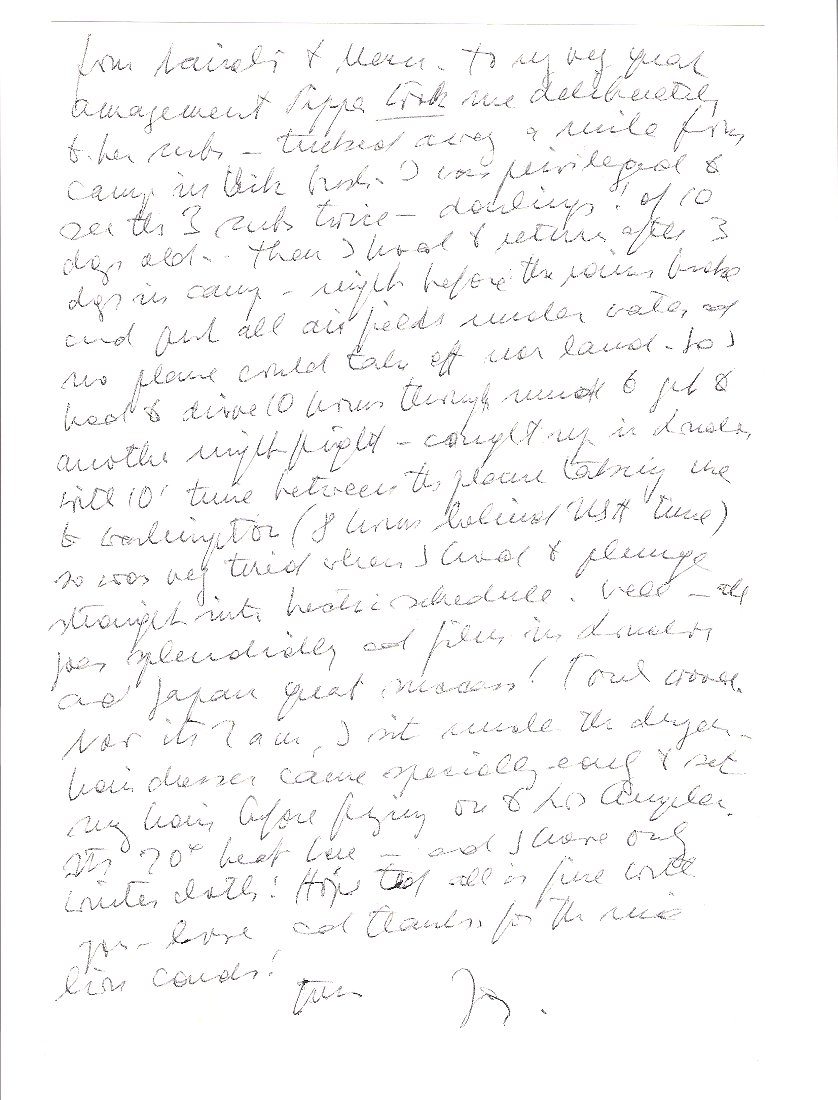 from Nairobi & Meru. To my very great
amagement Pippa took me deliberately
to her cubs – tucked away a mile from
camp in thik bush. I was privileged to
see the 3 cubs twice – darlings! of 10
days old.. Then I had to return after 3
days in camp – night before the rains broke
and put all air fields under water and
no plane could take off nor land – so I
had to drive 10 hours through mud to get to
another night flight – caught up in London,
with 10' time between the plane taking me
to Washington (8 hours behind USA time)
so was very tired when I had to plunge
straight into hectic schedule. Well – all
goes splendidly and film in London
and Japan great success! Touch wood.
Now its 7 am, I sit under the dryer –
hairdresser came specially early to set
my hair before flying on to Los Angeles.
Its 70° heat here – and I have only
winter cloths! Hope that all is fine with
you – love and thanks for the nice
lion cards!
Yours Joy.